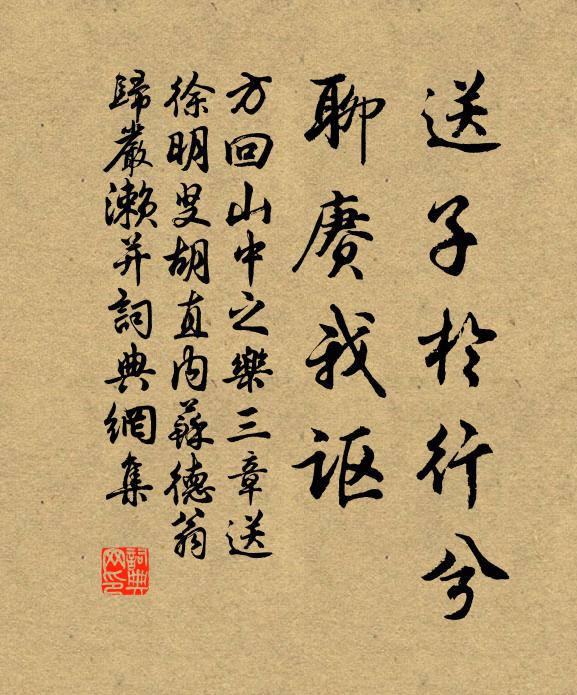 送子於行兮
聊賡我謳
方回山中之樂三章送
徐明叟胡直内蘇德翁
歸嚴瀨并詞典網集
詞典网印